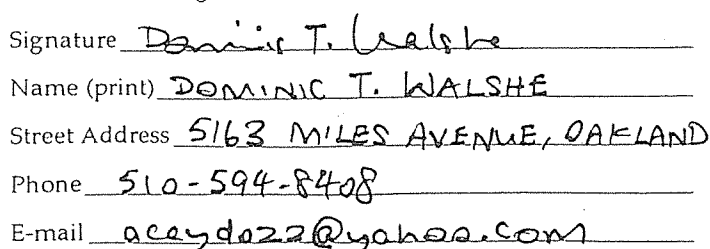 Signature Dominic T. Walshe
Name (print) DOMINIC T. WALSHE
Street Address 5163 MILES AVENUE, OAKLAND
Phone 510-594-8408
E-mail aceydozz@yahoo.com